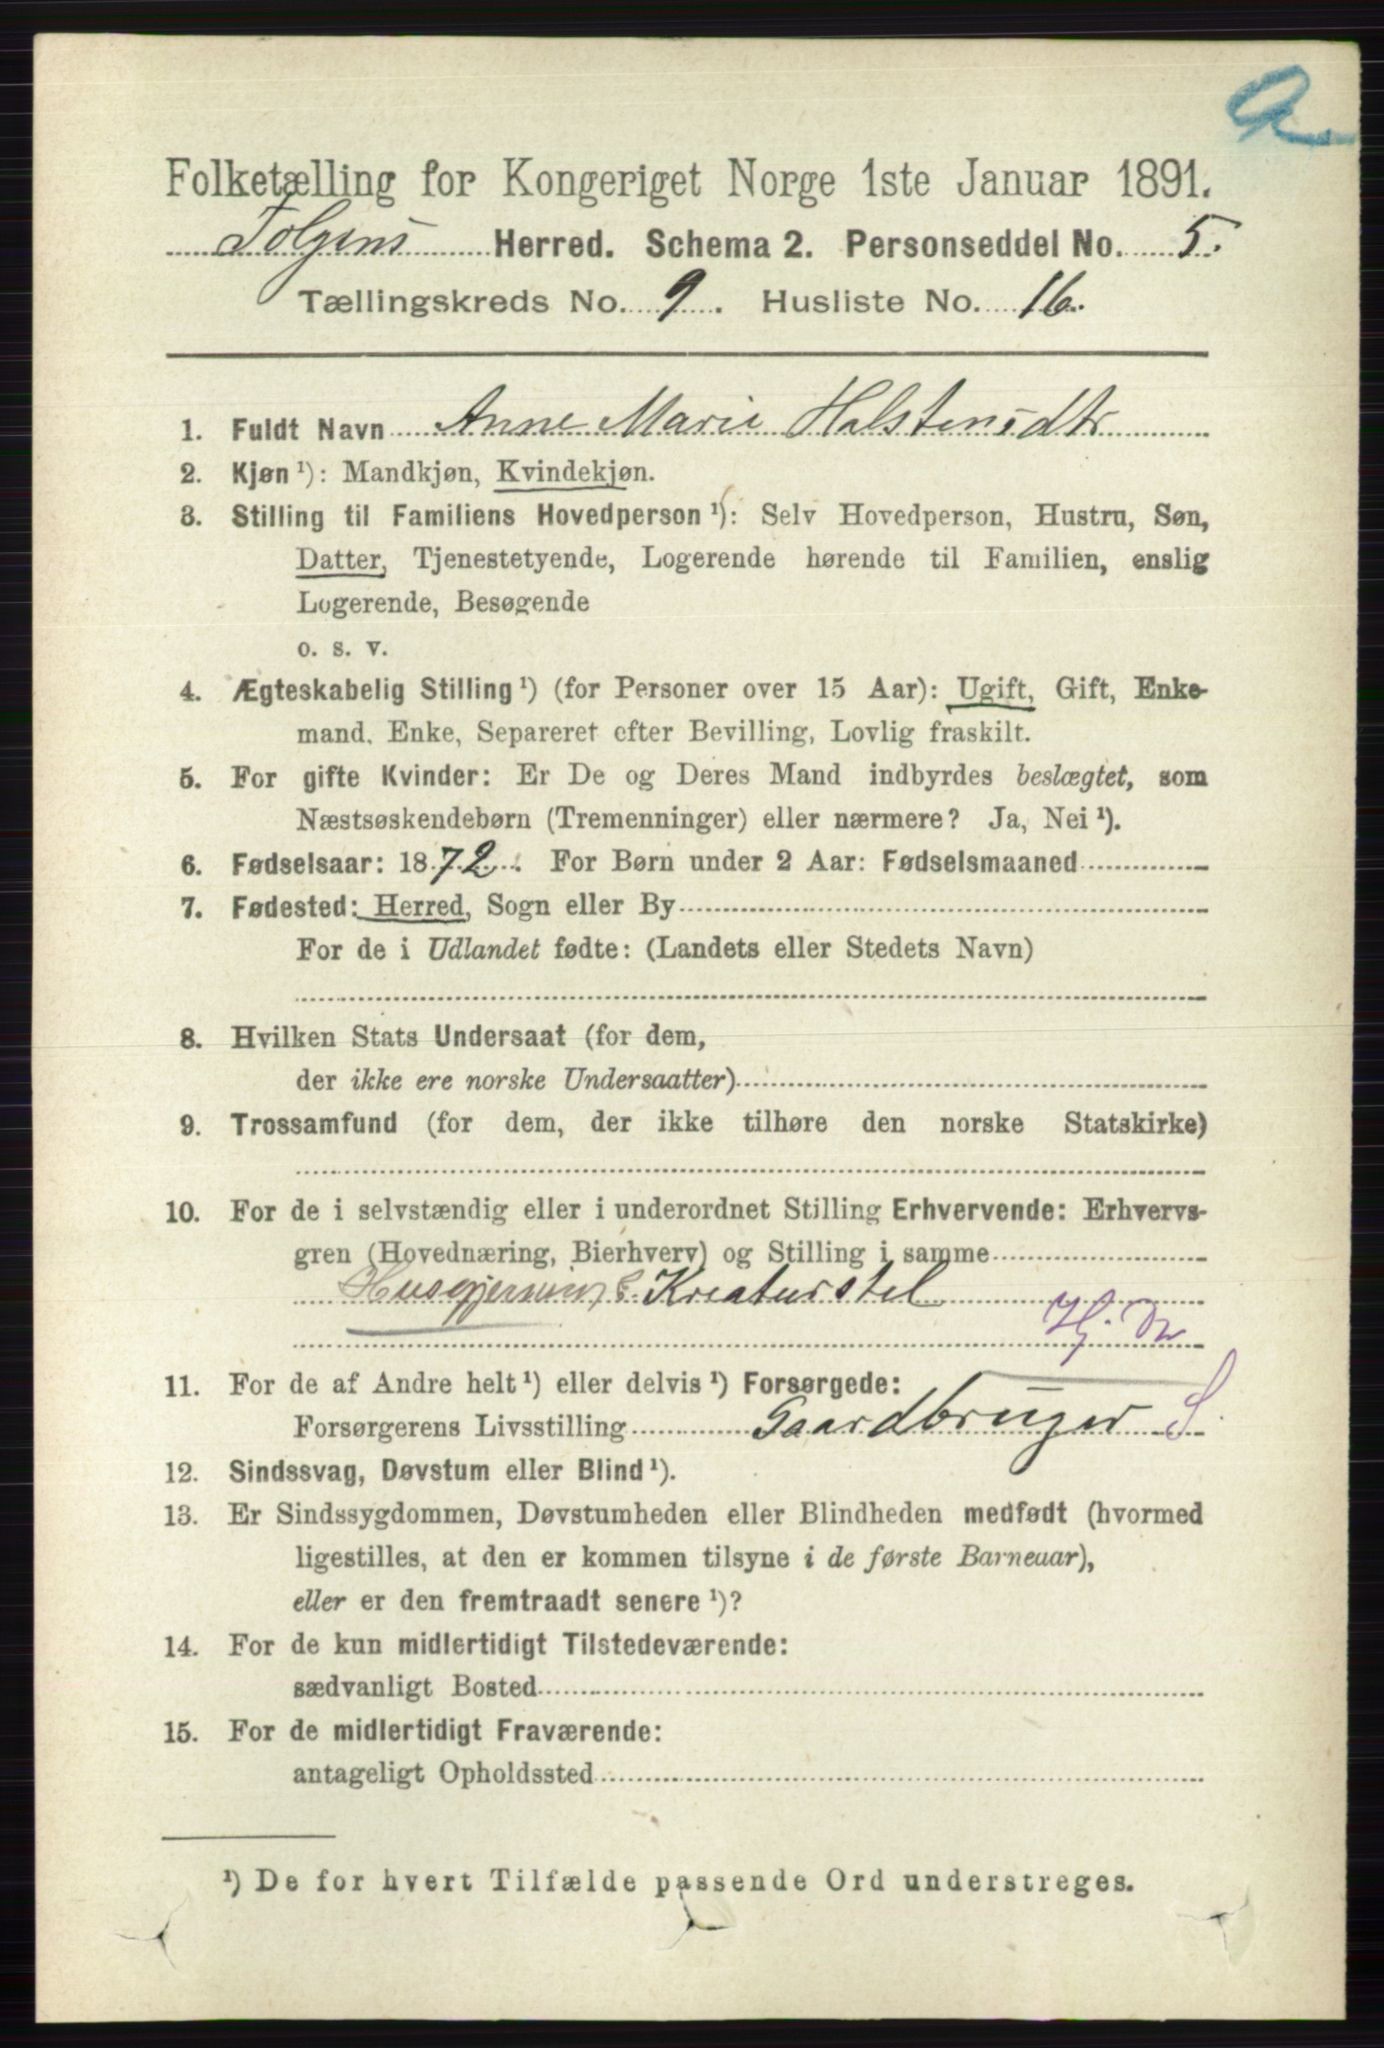 a
Folketælling for Kongeriget Norge 1ste Januar 1891.
Tolgens Herred. Schema 2. Personseddel No. 5.
Tællingskreds No. 9. Husliste No. 16.
1. Fuldt Navn Anne Marie Halstensdtr
2. Kjøn ¹): Mandkjøn, Kvindekjøn.
3. Stilling til Familiens Hovedperson ¹): Selv Hovedperson, Hustru, Søn,
Datter, Tjenestetyende, Logerende hørende til Familien, enslig
Logerende, Besøgende
o. s. v.
4. Ægteskabelig Stilling ¹) (for Personer over 15 Aar): Ugift, Gift, Enke-
mand, Enke, Separeret efter Bevilling, Lovlig fraskilt.
5. For gifte Kvinder: Er De og Deres Mand indbyrdes beslægtet, som
Næstsøskendebørn (Tremenninger) eller nærmere? Ja, Nei ¹).
6. Fødselsaar: 1872. For Børn under 2 Aar: Fødselsmaaned
7. Fødested: Herred, Sogn eller By
For de i Udlandet fødte: (Landets eller Stedets Navn)
8. Hvilken Stats Undersaat (for dem,
der ikke ere norske Undersaatter)
9. Trossamfund (for dem, der ikke tilhøre den norske Statskirke)
10. For de i selvstændig eller i underordnet Stilling Erhvervende: Erhvervs-
gren (Hovednæring, Bierhverv) og Stilling i samme
Husgjerning & Kreaturstel
Hj. D
11. For de af Andre helt ¹) eller delvis ¹) Forsørgede:
Forsørgerens Livsstilling Gaardbruger S
12. Sindssvag, Døvstum eller Blind ¹).
13. Er Sindssygdommen, Døvstumheden eller Blindheden medfødt (hvormed
ligestilles, at den er kommen tilsyne i de første Barneaar),
eller er den fremtraadt senere ¹)?
14. For de kun midlertidigt Tilstedeværende:
sædvanligt Bosted
15. For de midlertidigt Fraværende:
antageligt Opholdssted
¹) De for hvert Tilfælde passende Ord understreges.